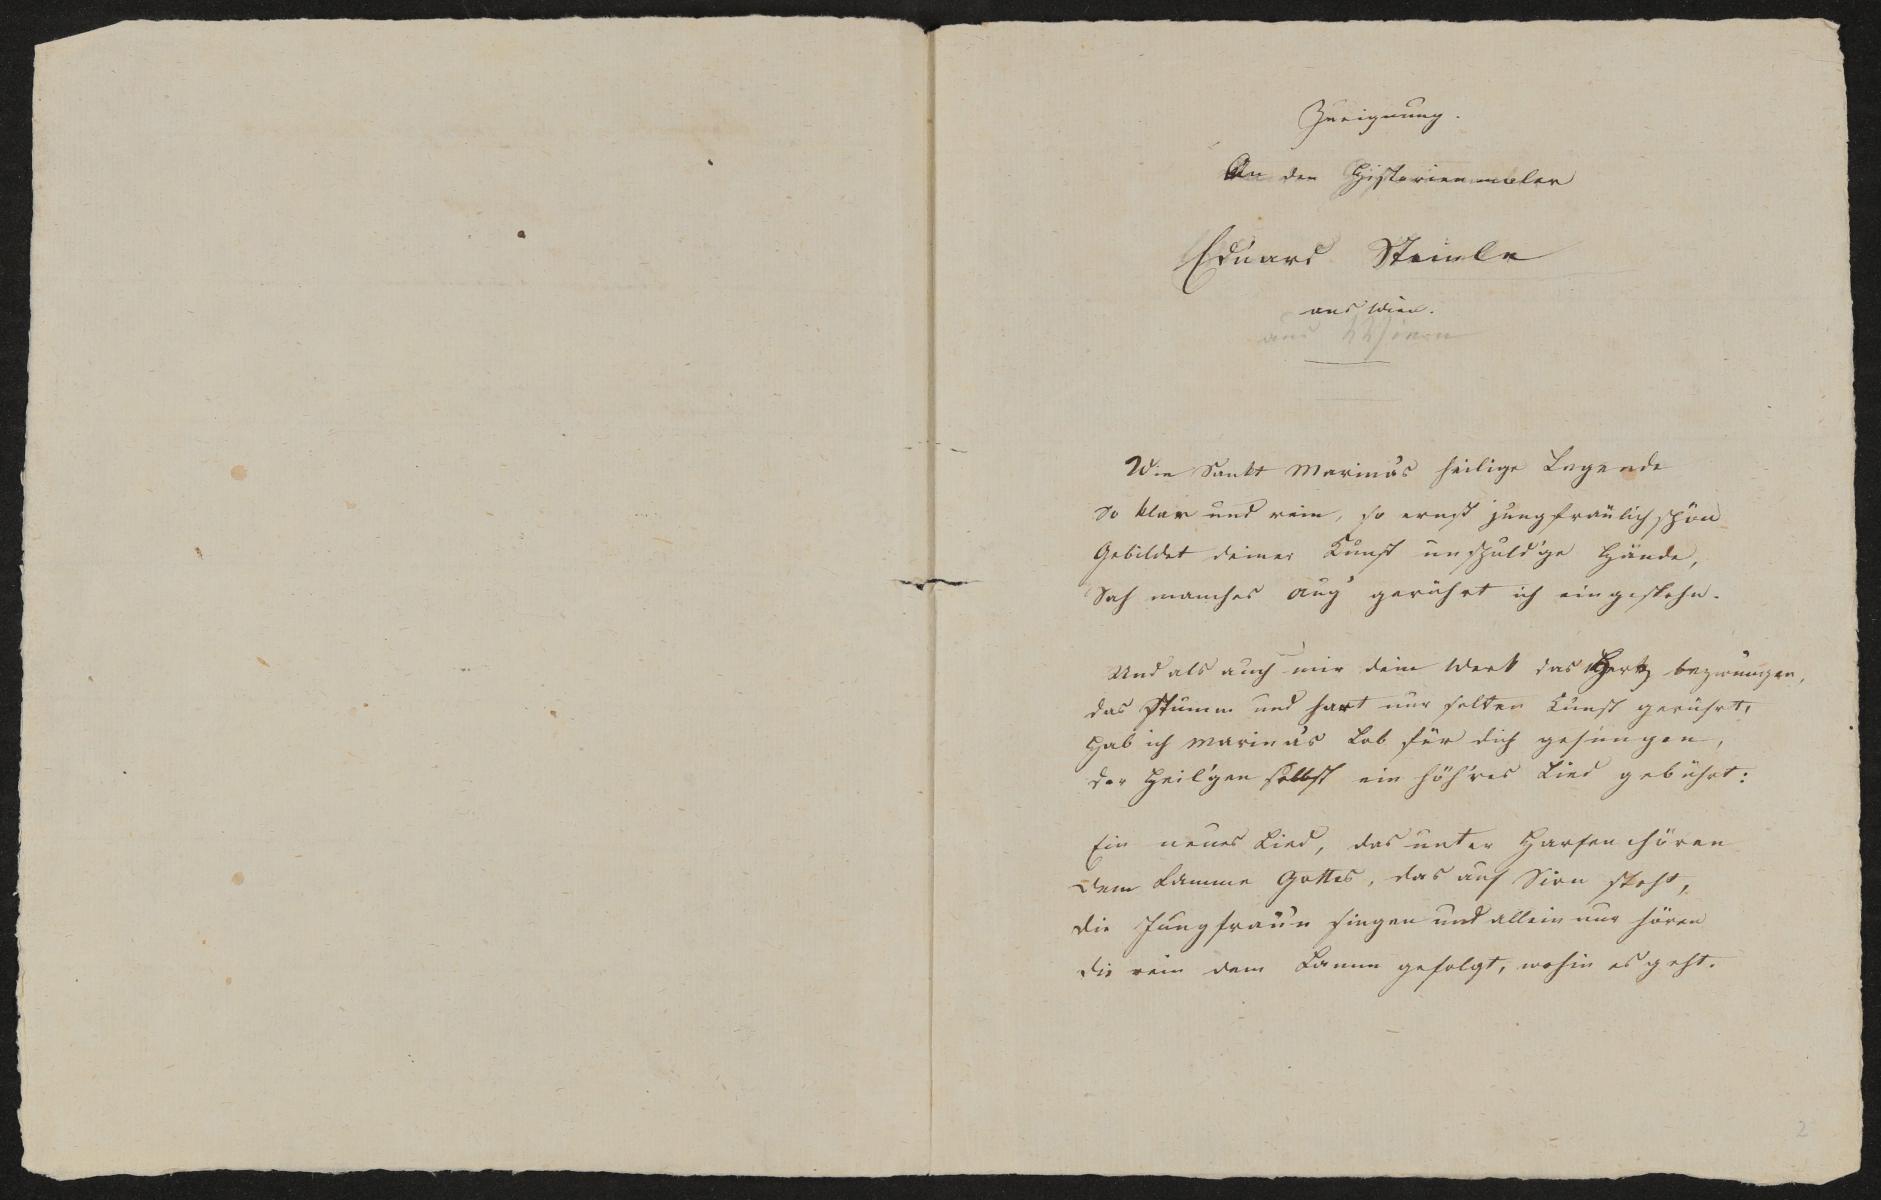 Zueignung.
An den Historienmaler
Eduard Steinle
aus Wien.
aus Wien
Wie Sankt Marina's heilige Legende
So klar und rein, so ernst jungfräulich schön
Gebildet deiner Kunst unschuld'ge Hände,
Sah manches Aug' gerührt ich eingestehn.
Und als auch mir dein Werk das Herz bezwungen,
das stumm und hart nur selten Kunst gerührt,
Hab ich Marina's Lob für dich gesungen,
der Heil'gen selbst ein höh'res Lied gebührt:
Ein neues Lied, das unter Harfenchören
dem Lamme Gottes, das auf Sion steht,
die Jungfrau'n singen und allein nur hören
die rein dem Lamm gefolgt, wohin es geht.
2